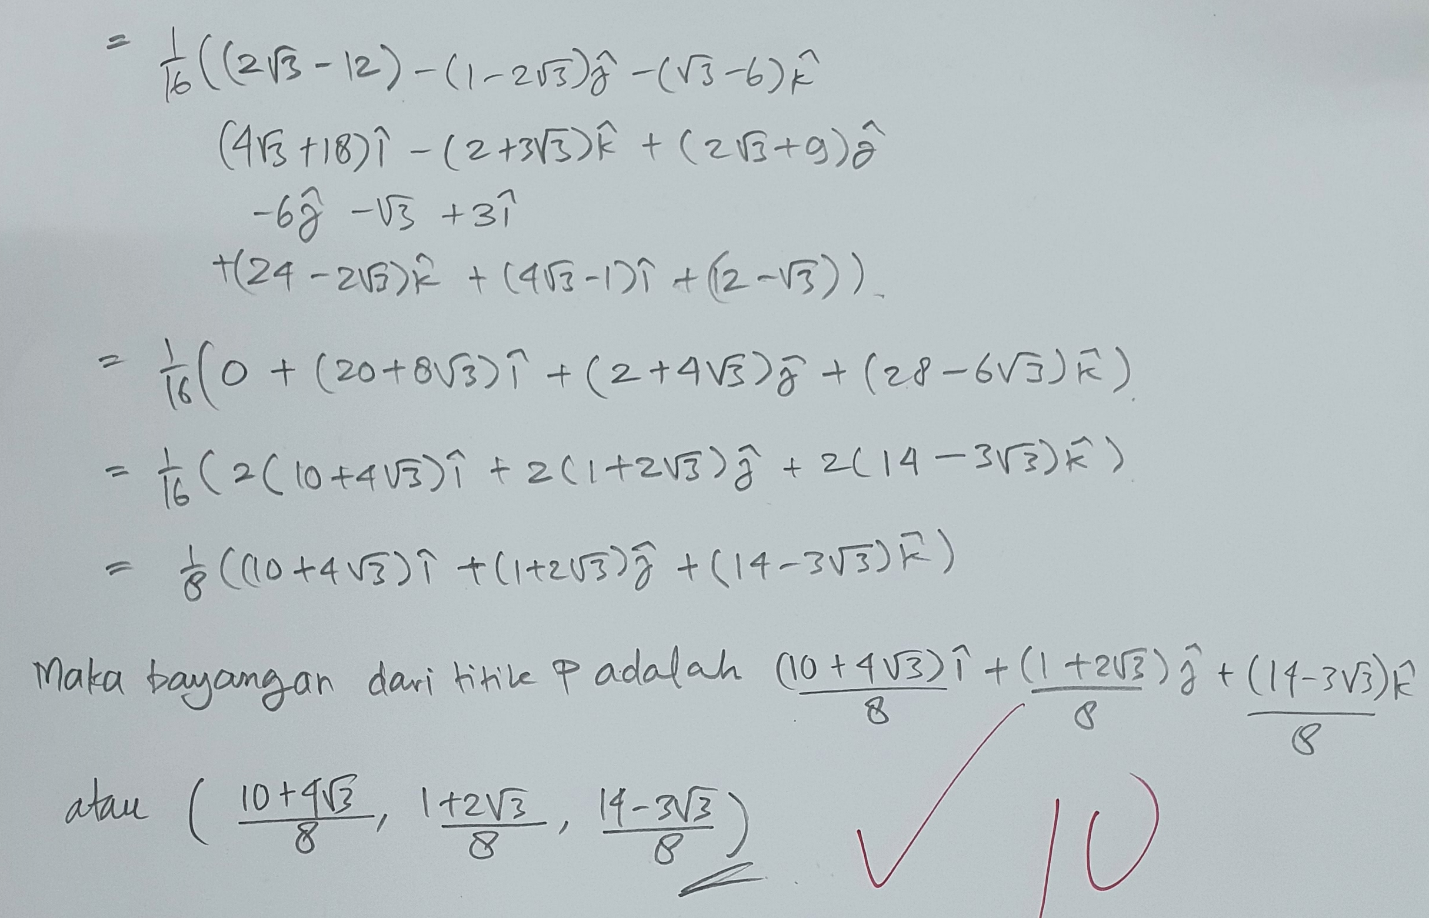 = 1/16 ((2√3 - 12) - (1 - 2√3)ĵ - (√3 - 6)k̂
(4√3 + 18)î - (2 + 3√3)k̂ + (2√3 + 9)ĵ
-6ĵ - √3 + 3î
+(24 - 2√3)k̂ + (4√3 - 1)î + (12 - √3)).
= 1/16 (0 + (20 + 8√3)î + (2 + 4√3)ĵ + (28 - 6√3)k̂).
= 1/16 (2(10 + 4√3)î + 2(1 + 2√3)ĵ + 2(14 - 3√3)k̂)
= 1/8 ((10 + 4√3)î + (1 + 2√3)ĵ + (14 - 3√3)k̂)
Maka bayangan dari titik P adalah (10 + 4√3)/8 î + (1 + 2√3)/8 ĵ + (14 - 3√3)/8 k̂
atau ( (10 + 4√3)/8 , (1 + 2√3)/8 , (14 - 3√3)/8 )
✓ 10